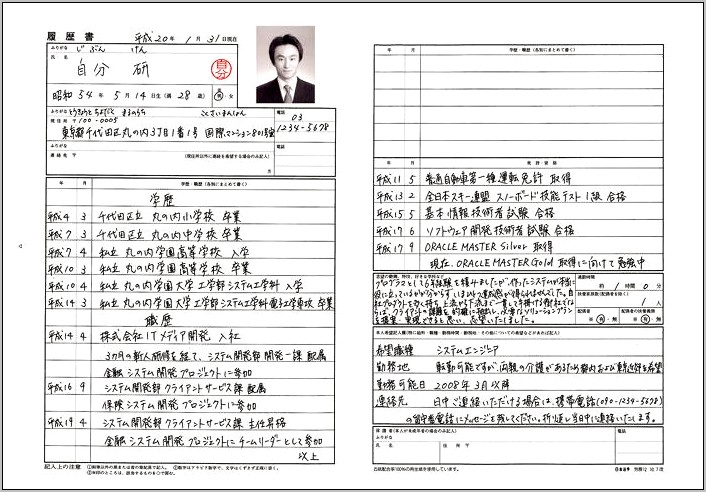 履歴書 平成20年 1月 31日現在
ふりがな じぶん けん
氏名 自分 研
昭和 54年 5月 14日生 (満 28歳) 男・女
ふりがな とうきょうとちよだく まるのうち こくさいまんしょん
現住所 〒100-0005
東京都千代田区丸の内3丁目1番1号 国際マンション801号室
電話 03
1234-5678
ふりがな
連絡先 〒 (現住所以外に連絡を希望する場合のみ記入)
電話
年 月 学歴・職歴(各別にまとめて書く)
学歴
平成4 3 千代田区立 丸の内小学校 卒業
平成7 3 千代田区立 丸の内中学校 卒業
平成7 4 私立 丸の内学園高等学校 入学
平成10 3 私立 丸の内学園高等学校 卒業
平成10 4 私立 丸の内学園大学 工学部システム工学科 入学
平成14 3 私立 丸の内学園大学 工学部システム工学科電子工学専攻 卒業
職歴
平成14 4 株式会社ITメディア開発 入社
3カ月の新人研修を経て、システム開発部 開発一課 配属
金融システム開発プロジェクトに参加
平成16 9 システム開発部 クライアントサービス課 配属
保険システム開発プロジェクトに参加
平成19 4 システム開発部 クライアントサービス課 主任昇格
金融システム開発プロジェクトにチームリーダーとして参加
以上
記入上の注意
年 月 学歴・職歴(各別にまとめて書く)
年 月 免許・資格
平成11 5 普通自動車第一種運転免許 取得
平成13 2 全日本スキー連盟 スノーボード技能テスト1級 合格
平成15 5 基本情報技術者試験 合格
平成17 6 ソフトウェア開発技術者試験 合格
平成17 9 ORACLE MASTER Silver 取得
現在、ORACLE MASTER Gold 取得に向けて勉強中
通勤時間
約 1時間 0分
扶養家族数(配偶者を除く)
1人
配偶者
配偶者の扶養義務
本人希望記入欄
希望職種 システムエンジニア
勤務地 転勤可能ですが、両親の介護があるため都内および東京近郊を希望
勤務可能日 2008年3月以降
連絡先 日中ご連絡いただける場合は、携帯電話(090-1234-5678)
の留守番電話にメッセージを残してください。折り返し当日中に連絡いたします。
保護者(本人が未成年者の場合のみ記入)
ふりがな
氏名 住所 〒
電話
古紙配合率100%の再生紙を使用しています。